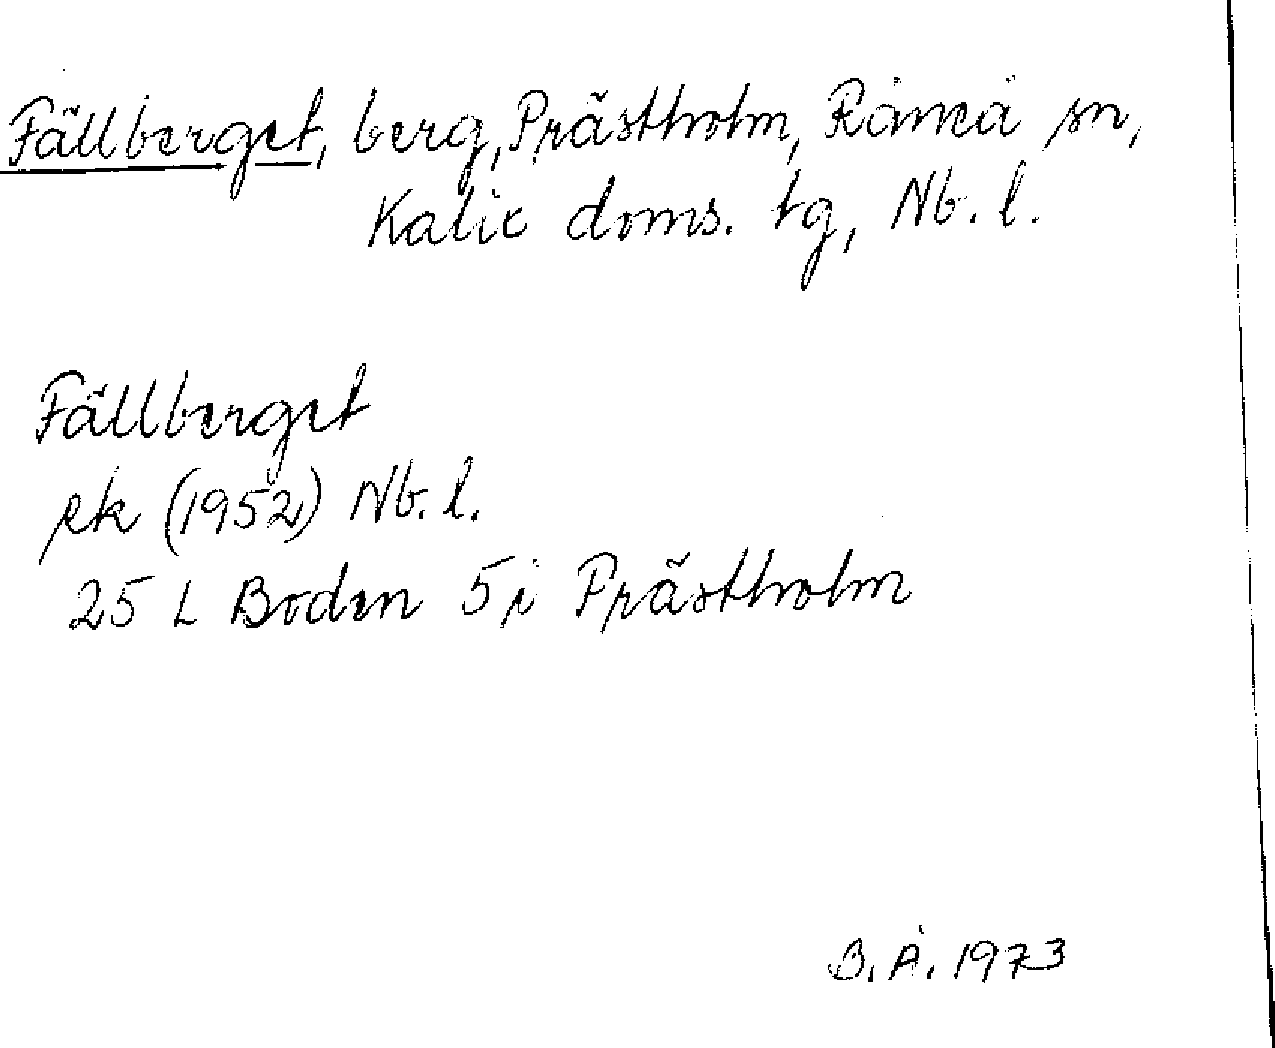 Fällberget, berg, Prästholm, Råneå sn,
Kalix doms. tg, Nb. l.
Fällberget
rk (1952) Nb. l.
25 L Boden 5 i Prästholm
B. Å. 1973